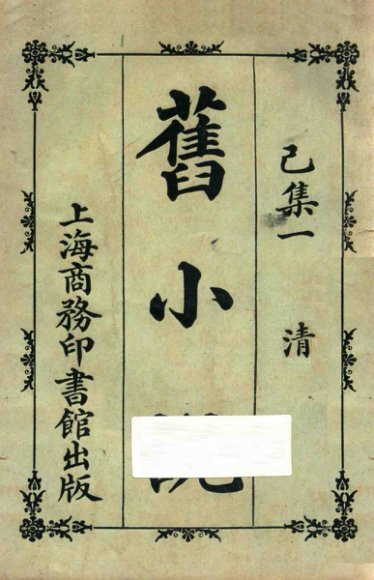 己集一 清
舊小
上海商務印書館出版